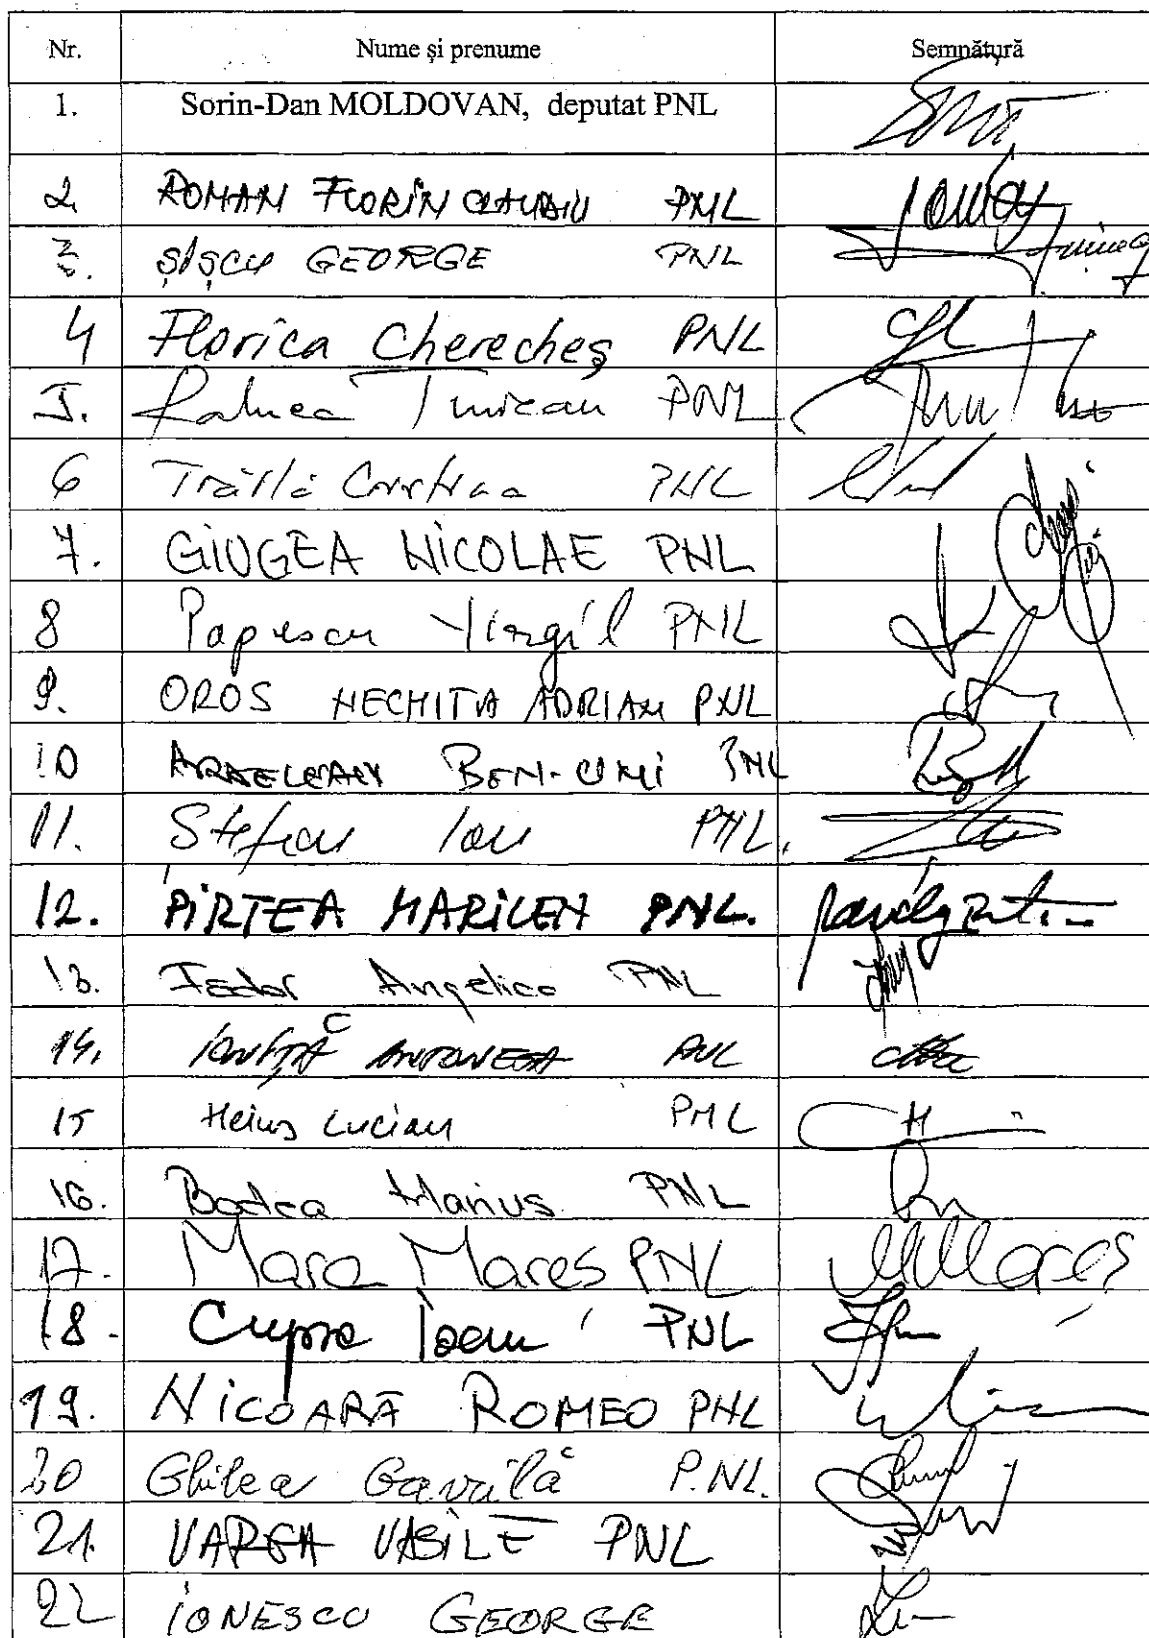 Nr. Nume și prenume Semnătură
1. Sorin-Dan MOLDOVAN, deputat PNL
2. ROMAN FLORIN CLAUDIU PNL
3. ȘIȘCU GEORGE PNL
4 Florica Cherecheș PNL
5. Raluca Turcan PNL
6 Trăilă Cristina PNL
7. GIUGEA NICOLAE PNL
8 Popescu Virgil PNL
9. OROS NECHITA ADRIAN PNL
10 BEN-OMI PNL
11. Stefan Ion PNL.
12. PÎRTEA MARILEN PNL.
13. Fador Angelica PNL
14. IONIȚĂ ANTONETA PNL
15 Heius Lucian PNL
16. Bodea Marius PNL
17. Mara Mares PNL MMares
18. Cupșa Ioan PNL
19. NICOARĂ ROMEO PNL
20 Ghilea Găvrilă P.NL.
21. VARGA VASILE PNL
22 IONESCU GEORGE